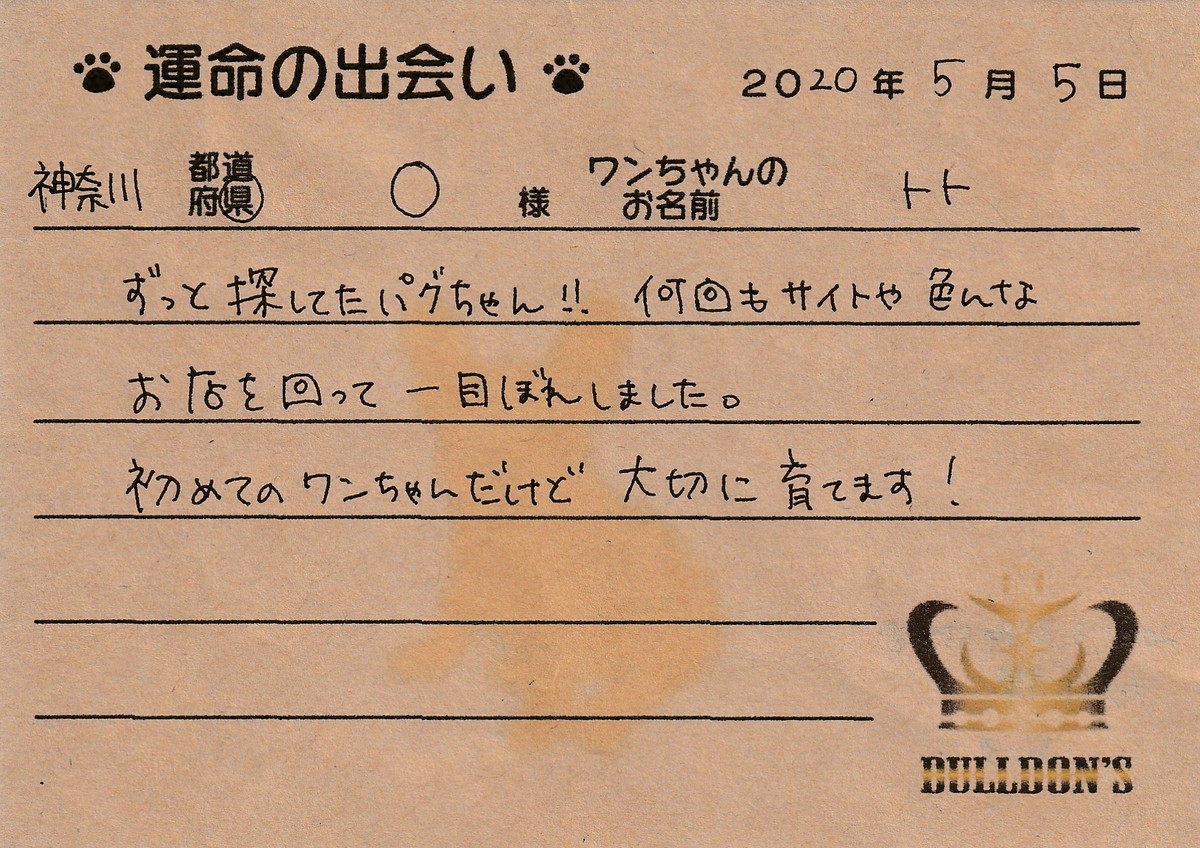 運命の出会い 2020年5月5日
神奈川 都道府県 ○ 様 ワンちゃんのお名前 トト
ずっと探してたパグちゃん!! 何回もサイトや色んな
お店を回って一目ぼれしました。
初めてのワンちゃんだけど 大切に育てます!
BULLDON'S